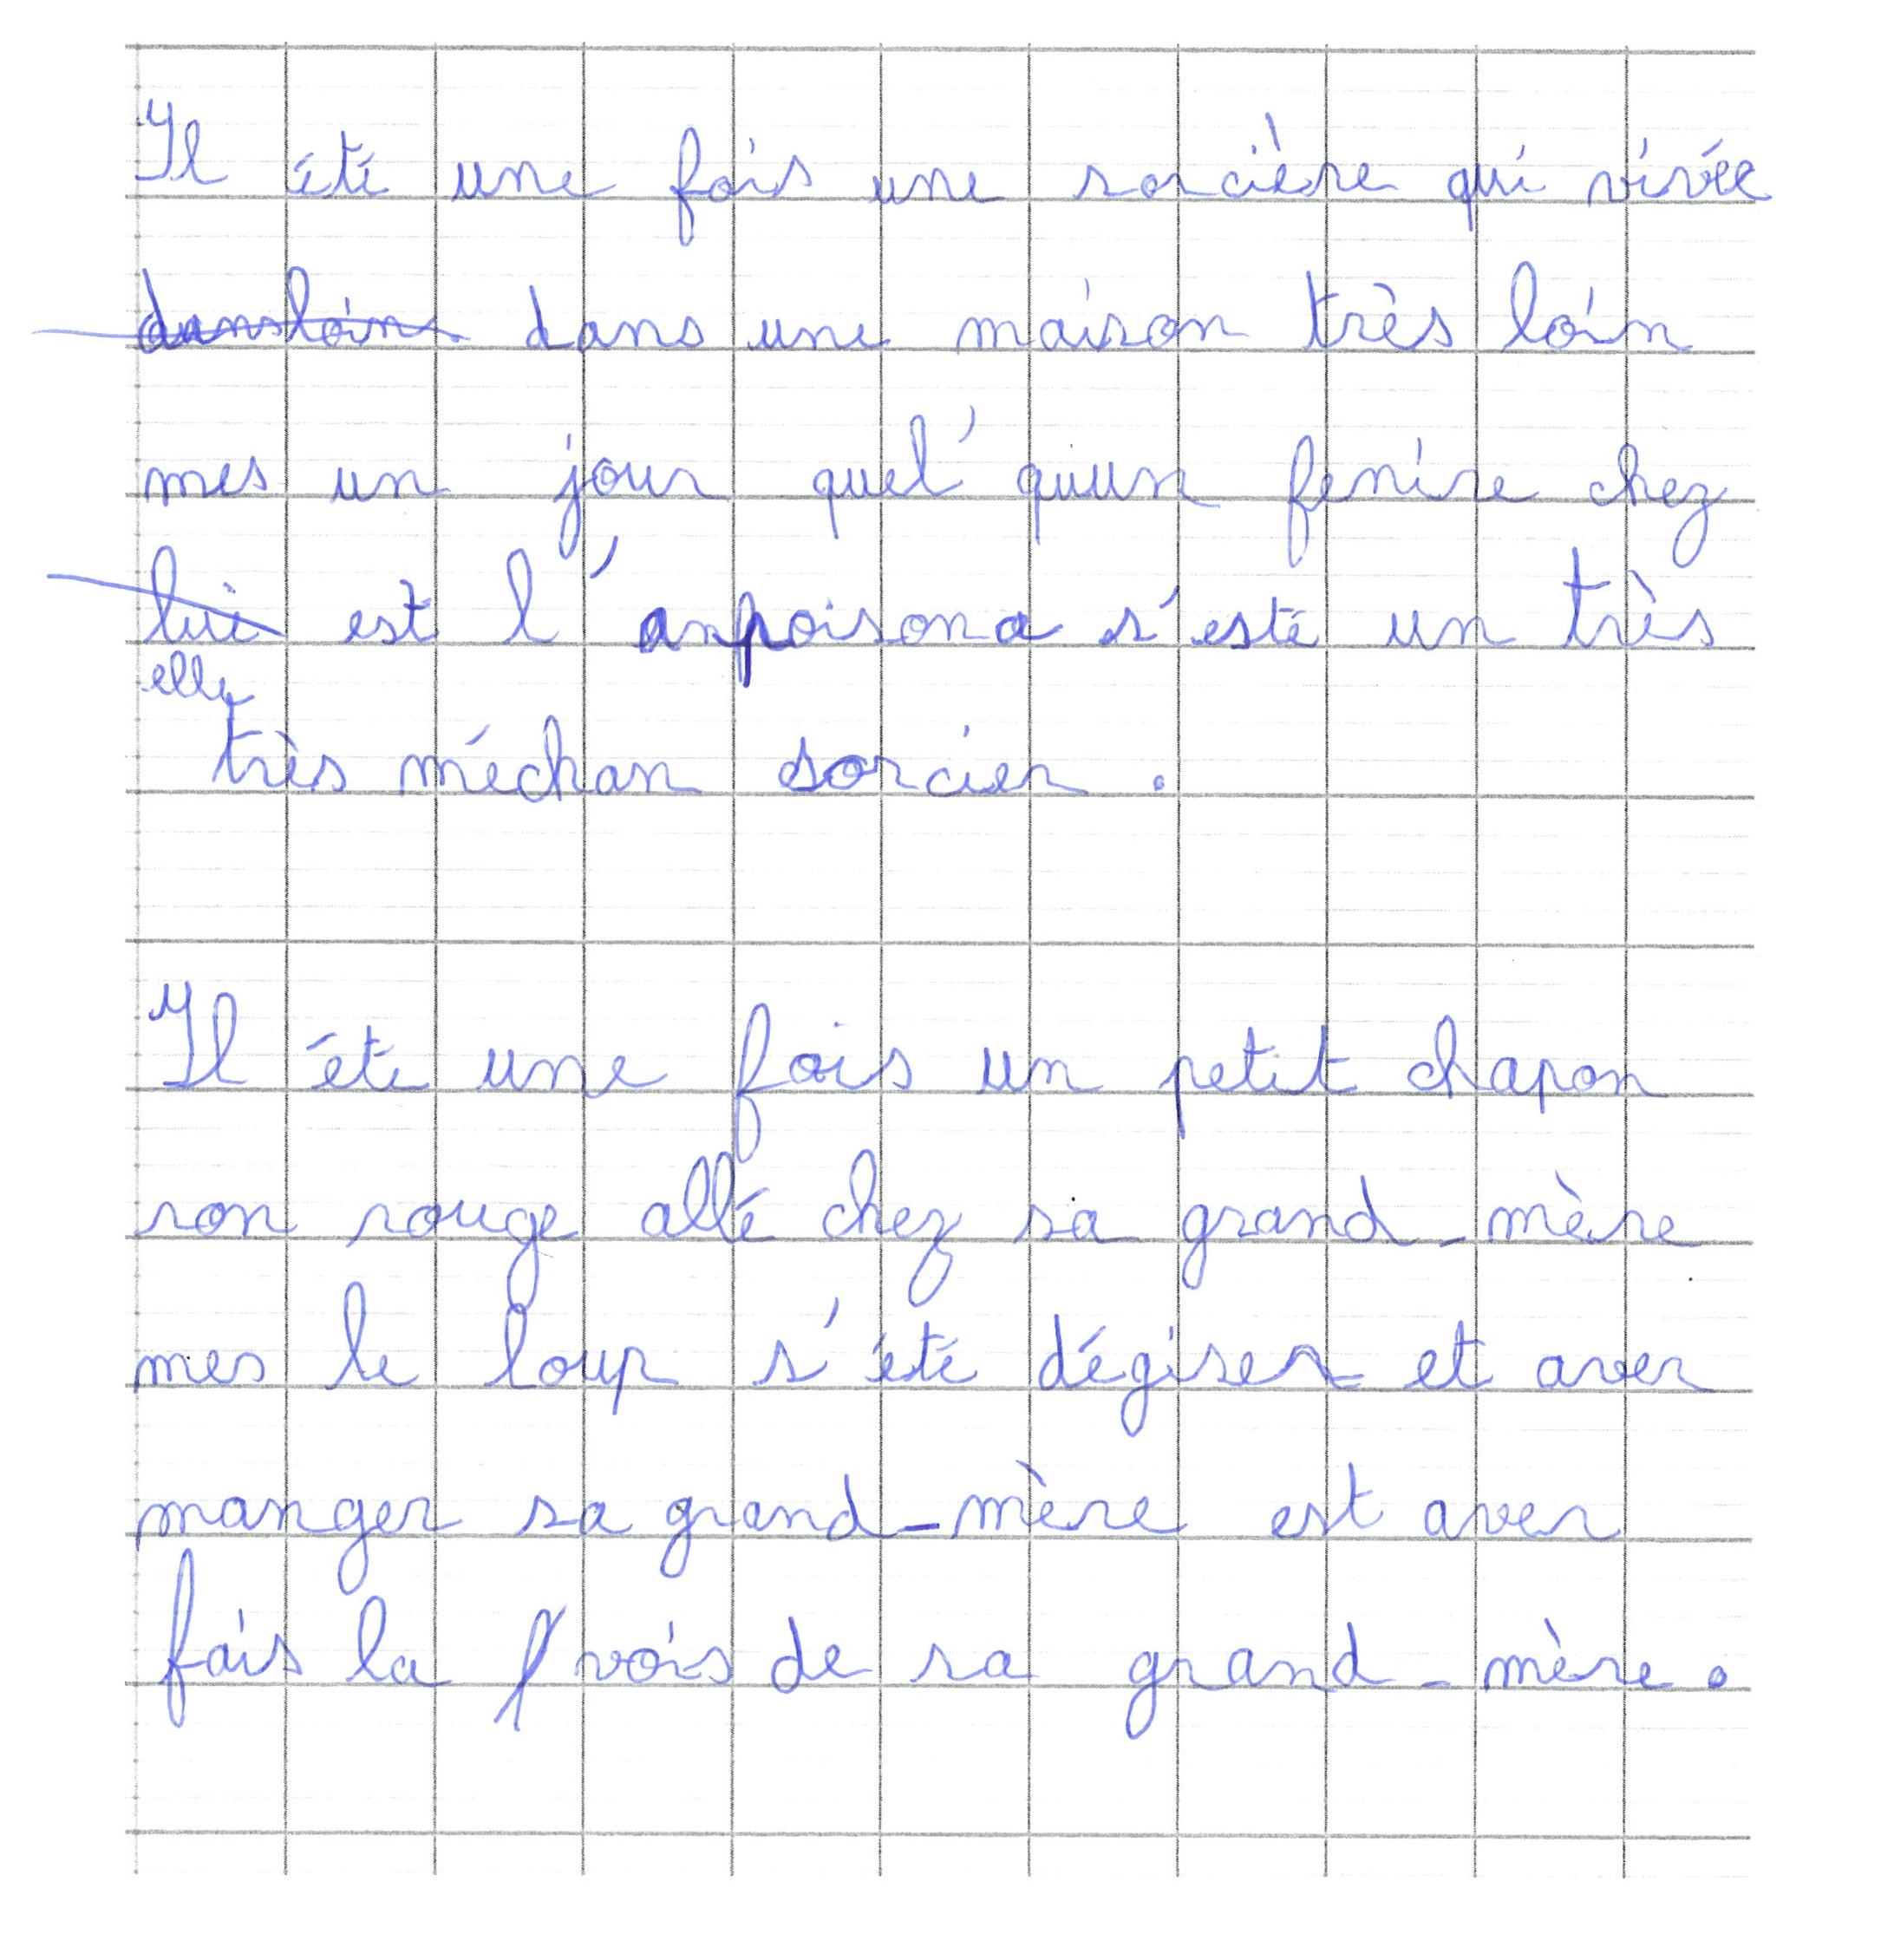 Il été une fois une sorcière qui vivée
dans loin dans une maison très loin
mes un jour quel'quun fenire chez
lui est l'anpoisona s'esté un très
elle
très méchan sorcier.
Il été une fois un petit chapon
ron rouge allé chez sa grand-mère
mes le loup s'été dégiser et aver
manger sa grand-mère est aver
fais la vois de sa grand-mère.